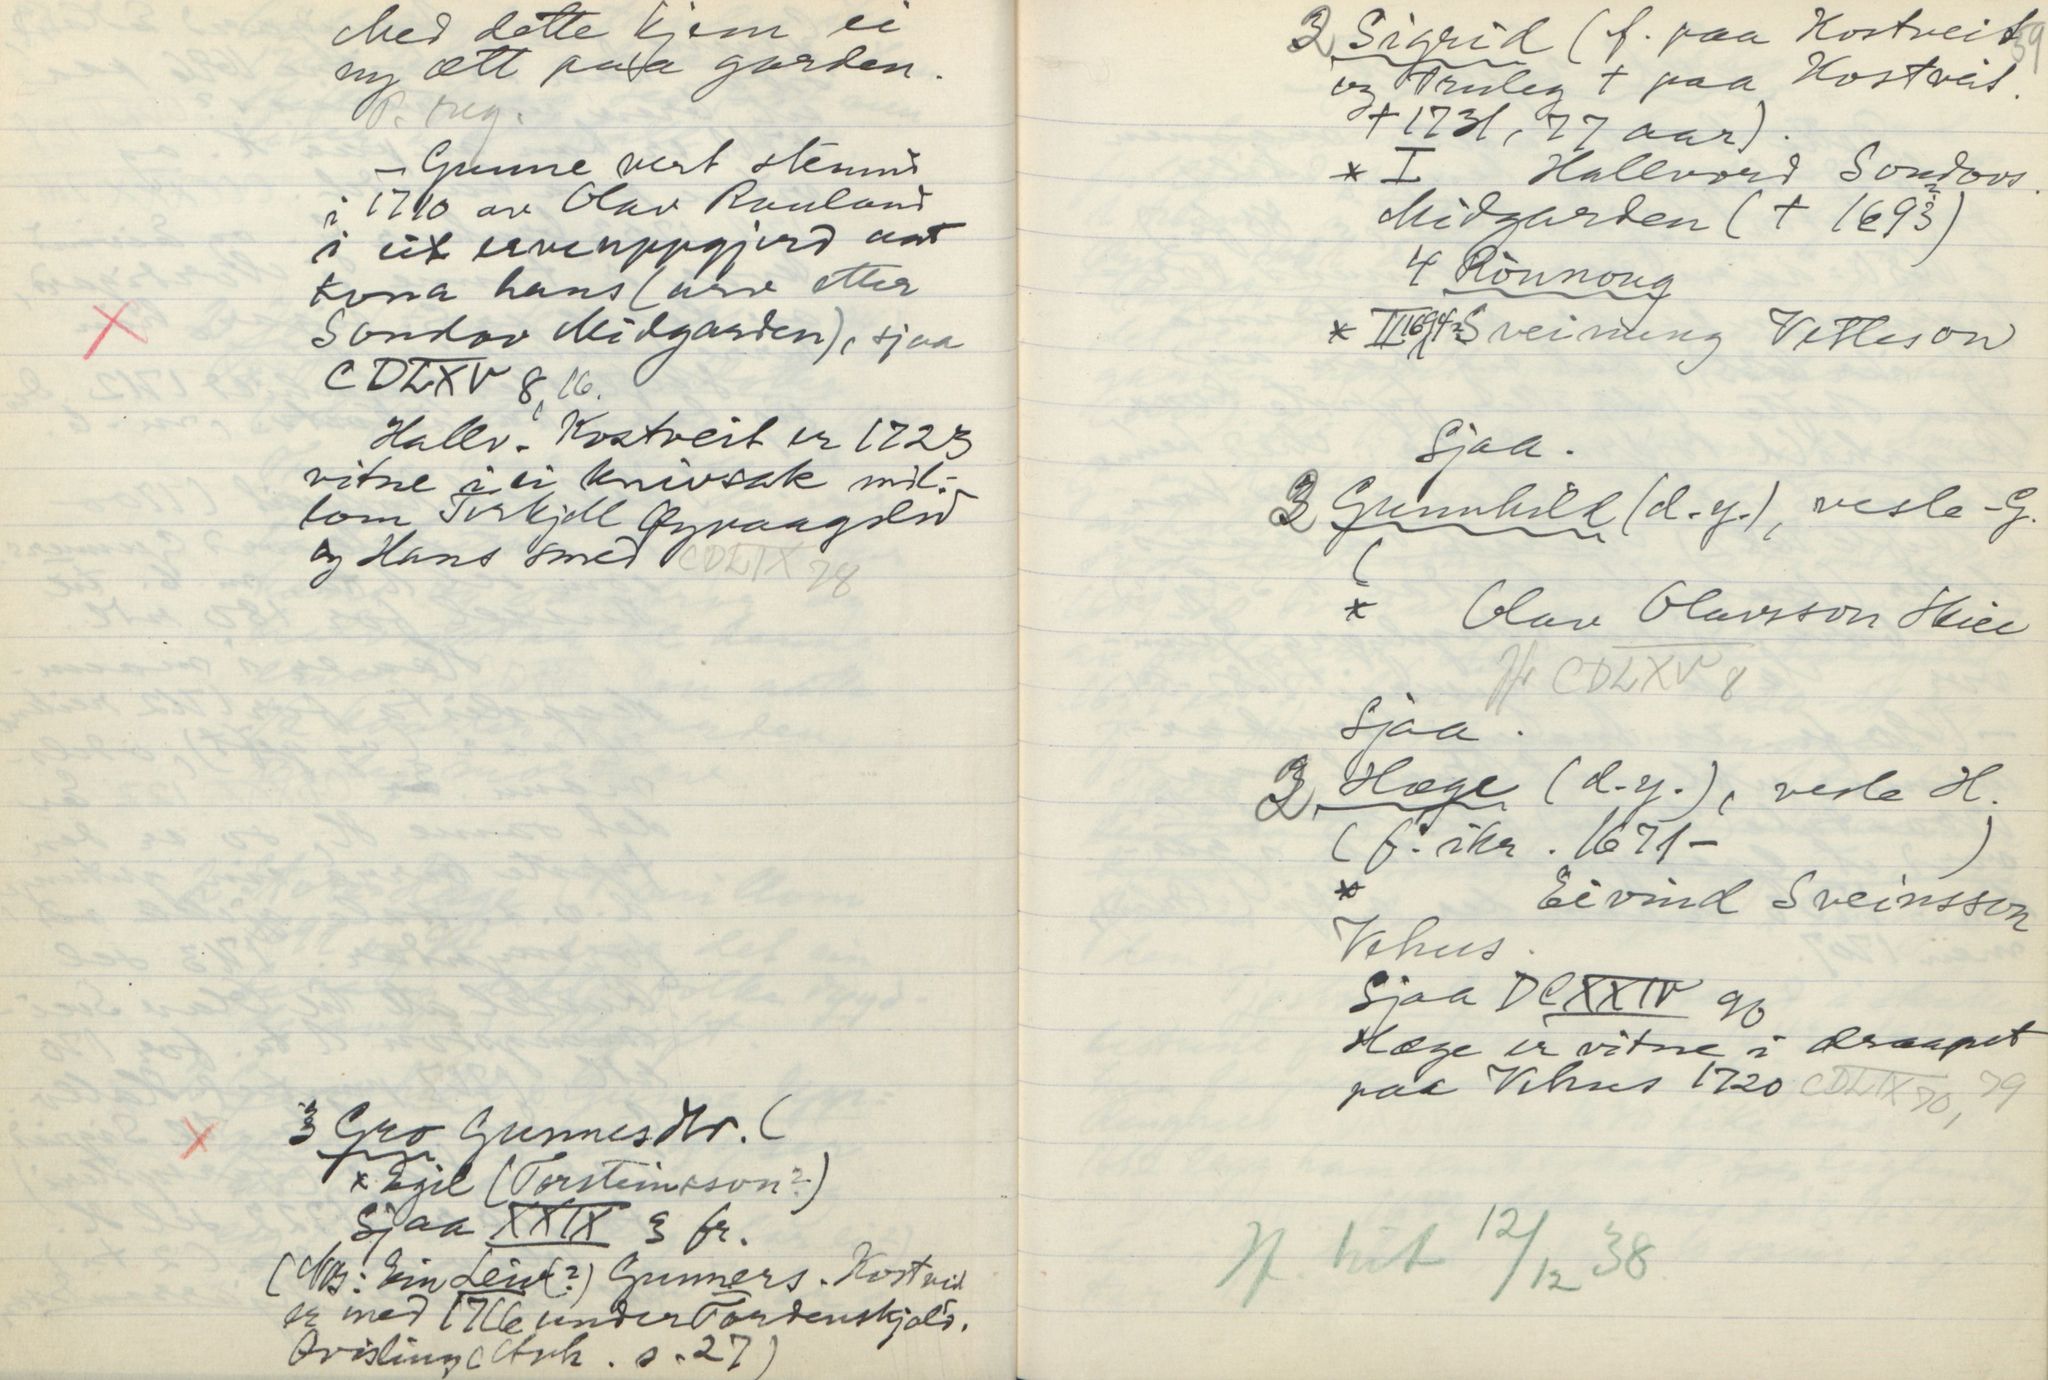 Med dette kjem ei
ny ætt paa garden.
P. reg.
– Gunne vert stemnd
i 1710 av Olav Rauland
i eit ervenppgjerd aat
kona hans (arv etter
Sondov Midgarden), sjaa
CDLXV 8, 16.
Hallv. Kostveit er 1723
vitne i ei knivsak mil-
lom Torkjell Øyvaagslid
og Hans smed CDLIX 78
3 Gro Gunnesdtr. (
* Egil (Torsteinsson?)
Sjaa XXIX 3 fr.
(Mrg: Ein Leiv(?) Gunners. Kostveid
er med 1716 under Tordenskjold.
Qvisling (Avh. s. 27)
39
3 Sigrid (f. paa Kostveit
og truleg † paa Kostveit.
† 1731, 77 aar).
* I Hallvord Sondovs.
Midgarden († 1693?)
4 Rönnoug
* II 1694? Sveinung Vetleson
Sjaa.
3 Gunnhild (d.y.), vesle-G.
(
* Olav Olavsson
Jfr CDLXV 8
Sjaa.
3 Hæge (d.y.), vesle H.
(f. ikr. 1671– )
* Eivind Sveinsson
Vehus.
Sjaa DCXXIV 90
Hæge er vitne i draapet
paa Vehus 1720 CDLIX 70, 79
Jf. hit 12/12 38